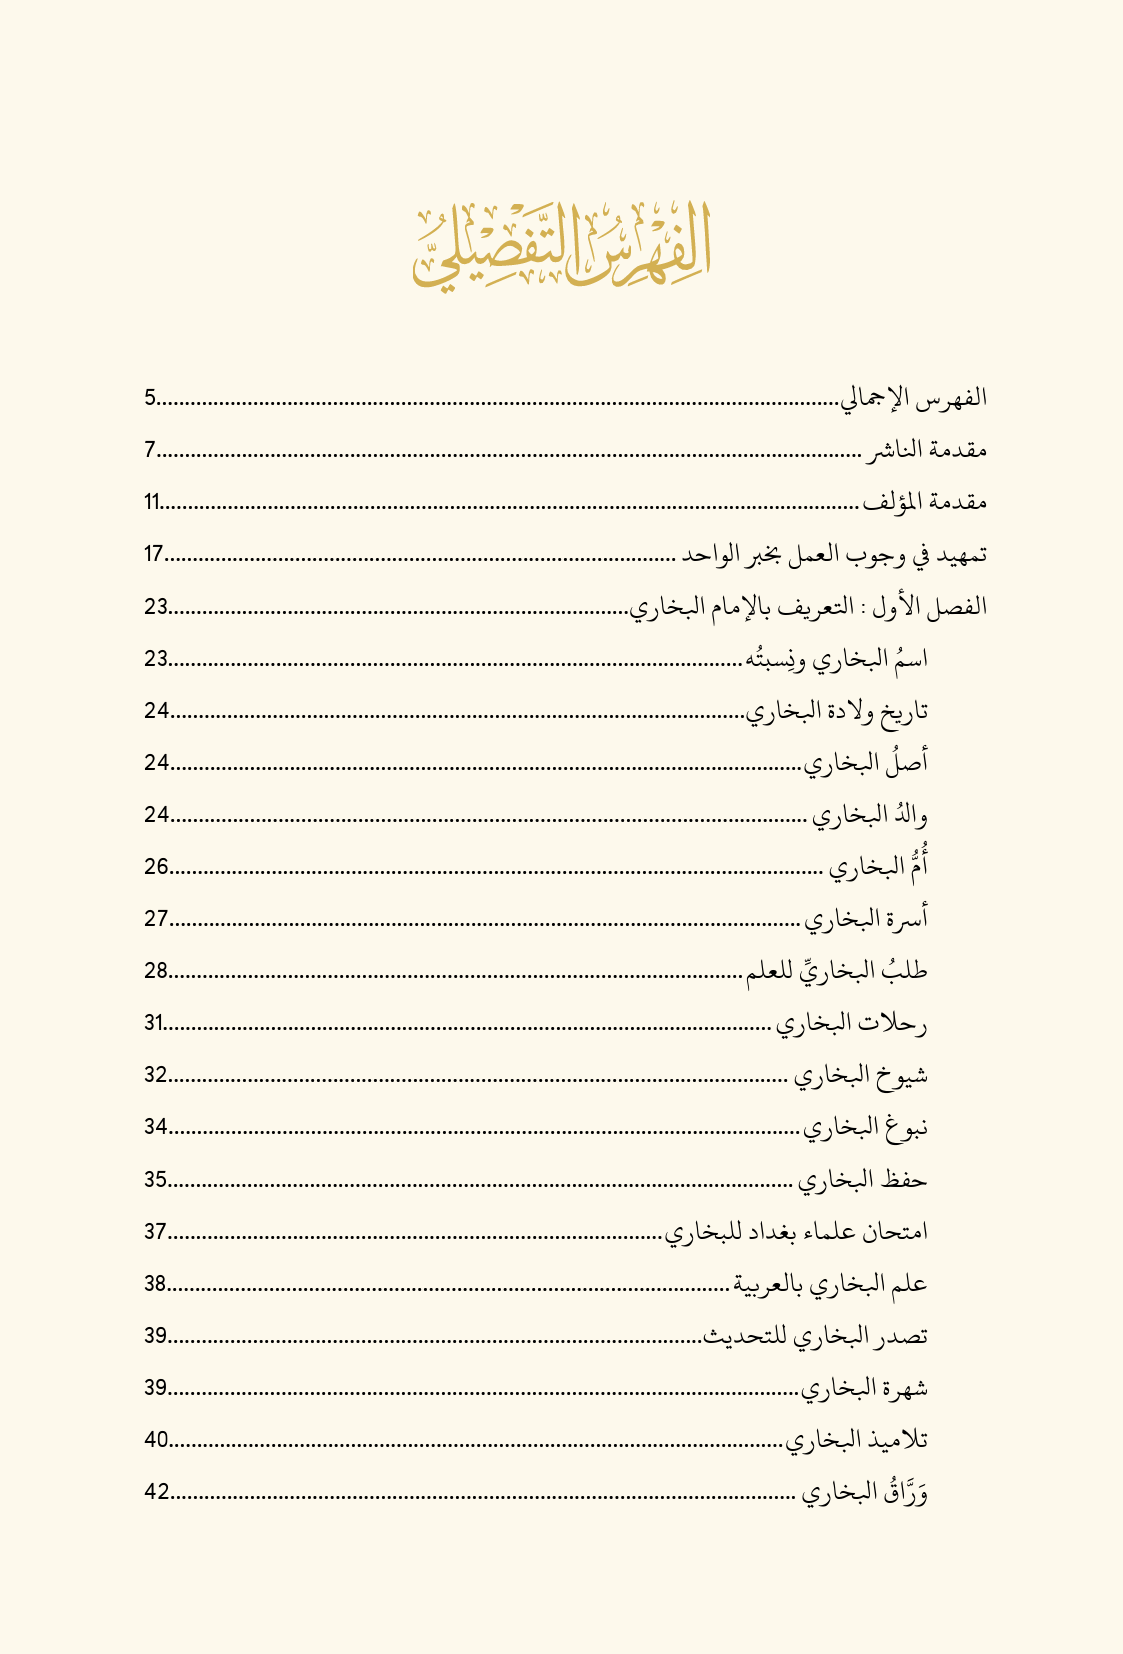 الفِهْرِسُ التَّفْصِيْلِيُّ
الفهرس الإجمالي................5
مقدمة الناشر................7
مقدمة المؤلف................11
تمهيد في وجوب العمل بخبر الواحد................17
الفصل الأول : التعريف بالإمام البخاري................23
اسمُ البخاري ونِسبتُه................23
تاريخ ولادة البخاري................24
أصلُ البخاري................24
والدُ البخاري................24
أُمُّ البخاري................26
أسرة البخاري................27
طلبُ البخاريِّ للعلم................28
رحلات البخاري................31
شيوخ البخاري................32
نبوغ البخاري................34
حفظ البخاري................35
امتحان علماء بغداد للبخاري................37
علم البخاري بالعربية................38
تصدر البخاري للتحديث................39
شهرة البخاري................39
تلاميذ البخاري................40
وَرَّاقُ البخاري................42